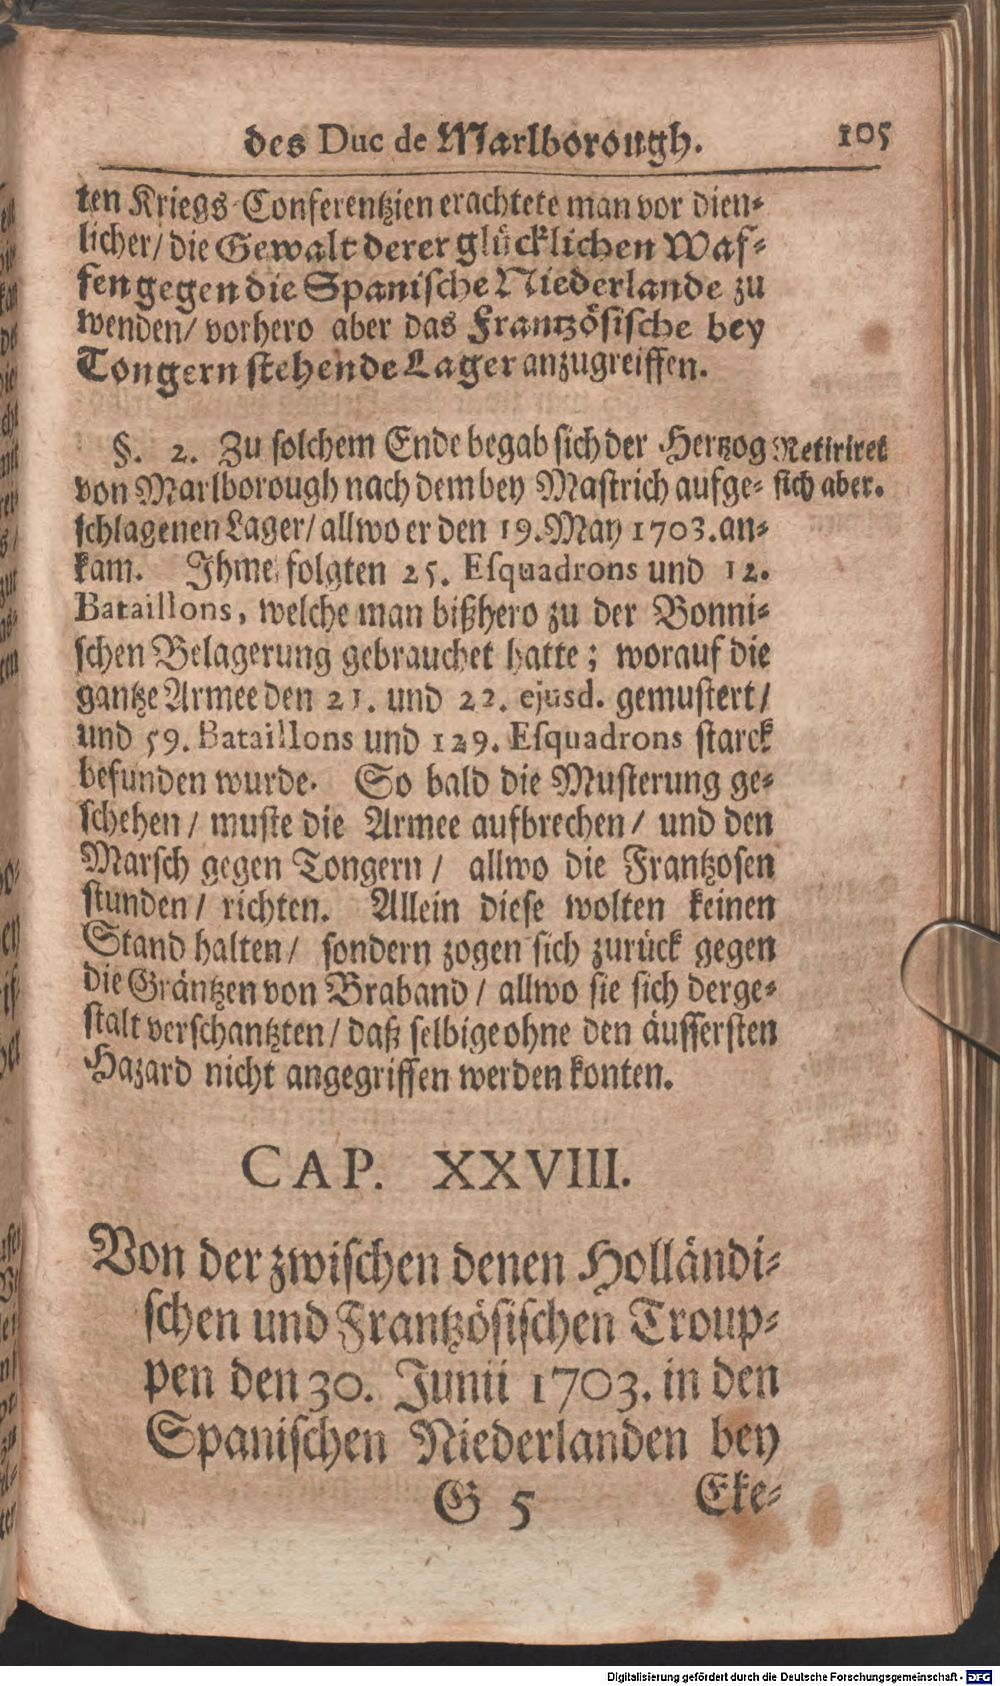 des Duc de Marlborough. 105
ten Kriegs-Conferentzien erachtete man vor dien-
licher/ die Gewalt derer glücklichen Waf-
fen gegen die Spanische Niederlande zu
wenden/ vorhero aber das Frantzösische bey
Tongern stehende Lager anzugreiffen.
§. 2. Zu solchem Ende begab sich der Hertzog
von Marlborough nach dem bey Mastrich aufge-
schlagenen Lager/ allwo er den 19. May 1703. an-
kam. Ihme folgten 25. Esquadrons und 12.
Bataillons, welche man bißhero zu der Bonni-
schen Belagerung gebrauchet hatte; worauf die
gantze Armee den 21. und 22. ejusd. gemustert/
und 59. Bataillons und 129. Esquadrons starck
befunden wurde. So bald die Musterung ge-
schehen/ muste die Armee aufbrechen/ und den
Marsch gegen Tongern/ allwo die Frantzosen
stunden/ richten. Allein diese wolten keinen
Stand halten/ sondern zogen sich zurück gegen
die Gräntzen von Braband/ allwo sie sich derge-
stalt verschantzten/ daß selbige ohne den äussersten
Hazard nicht angegriffen werden konten.
Retiriret
sich aber.
CAP. XXVIII.
Von der zwischen denen Holländi-
schen und Frantzösischen Troup-
pen den 30. Junii 1703. in den
Spanischen Niederlanden bey
G 5 Eke-
Digitalisierung gefördert durch die Deutsche Forschungsgemeinschaft - DFG